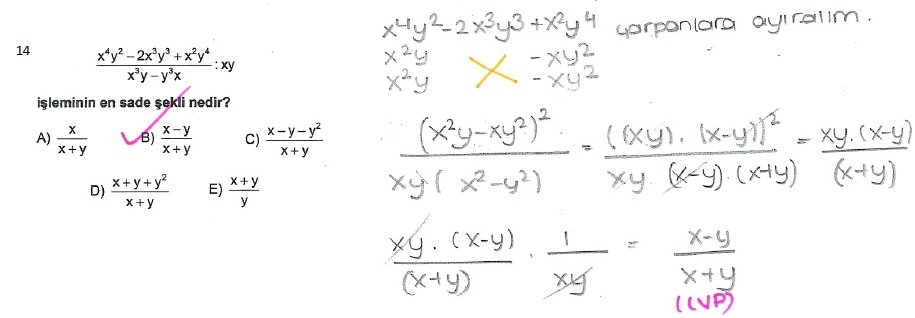 14
x⁴y² – 2x³y³ + x²y⁴ / x³y – y³x : xy
işleminin en sade şekli nedir?
A) x / x + y B) x – y / x + y C) x – y – y² / x + y
D) x + y + y² / x + y E) x + y / y
x⁴y² - 2x³y³ + x²y⁴ çarpanlara ayıralım.
x²y - xy²
x²y - xy²
(x²y - xy²)² / xy( x² - y²) = ((xy) . (x-y))² / xy . (x-y) . (x+y) = xy. (x-y) / (x+y)
xy . (x-y) / (x+y) . 1 / xy = x-y / x+y
((VP)